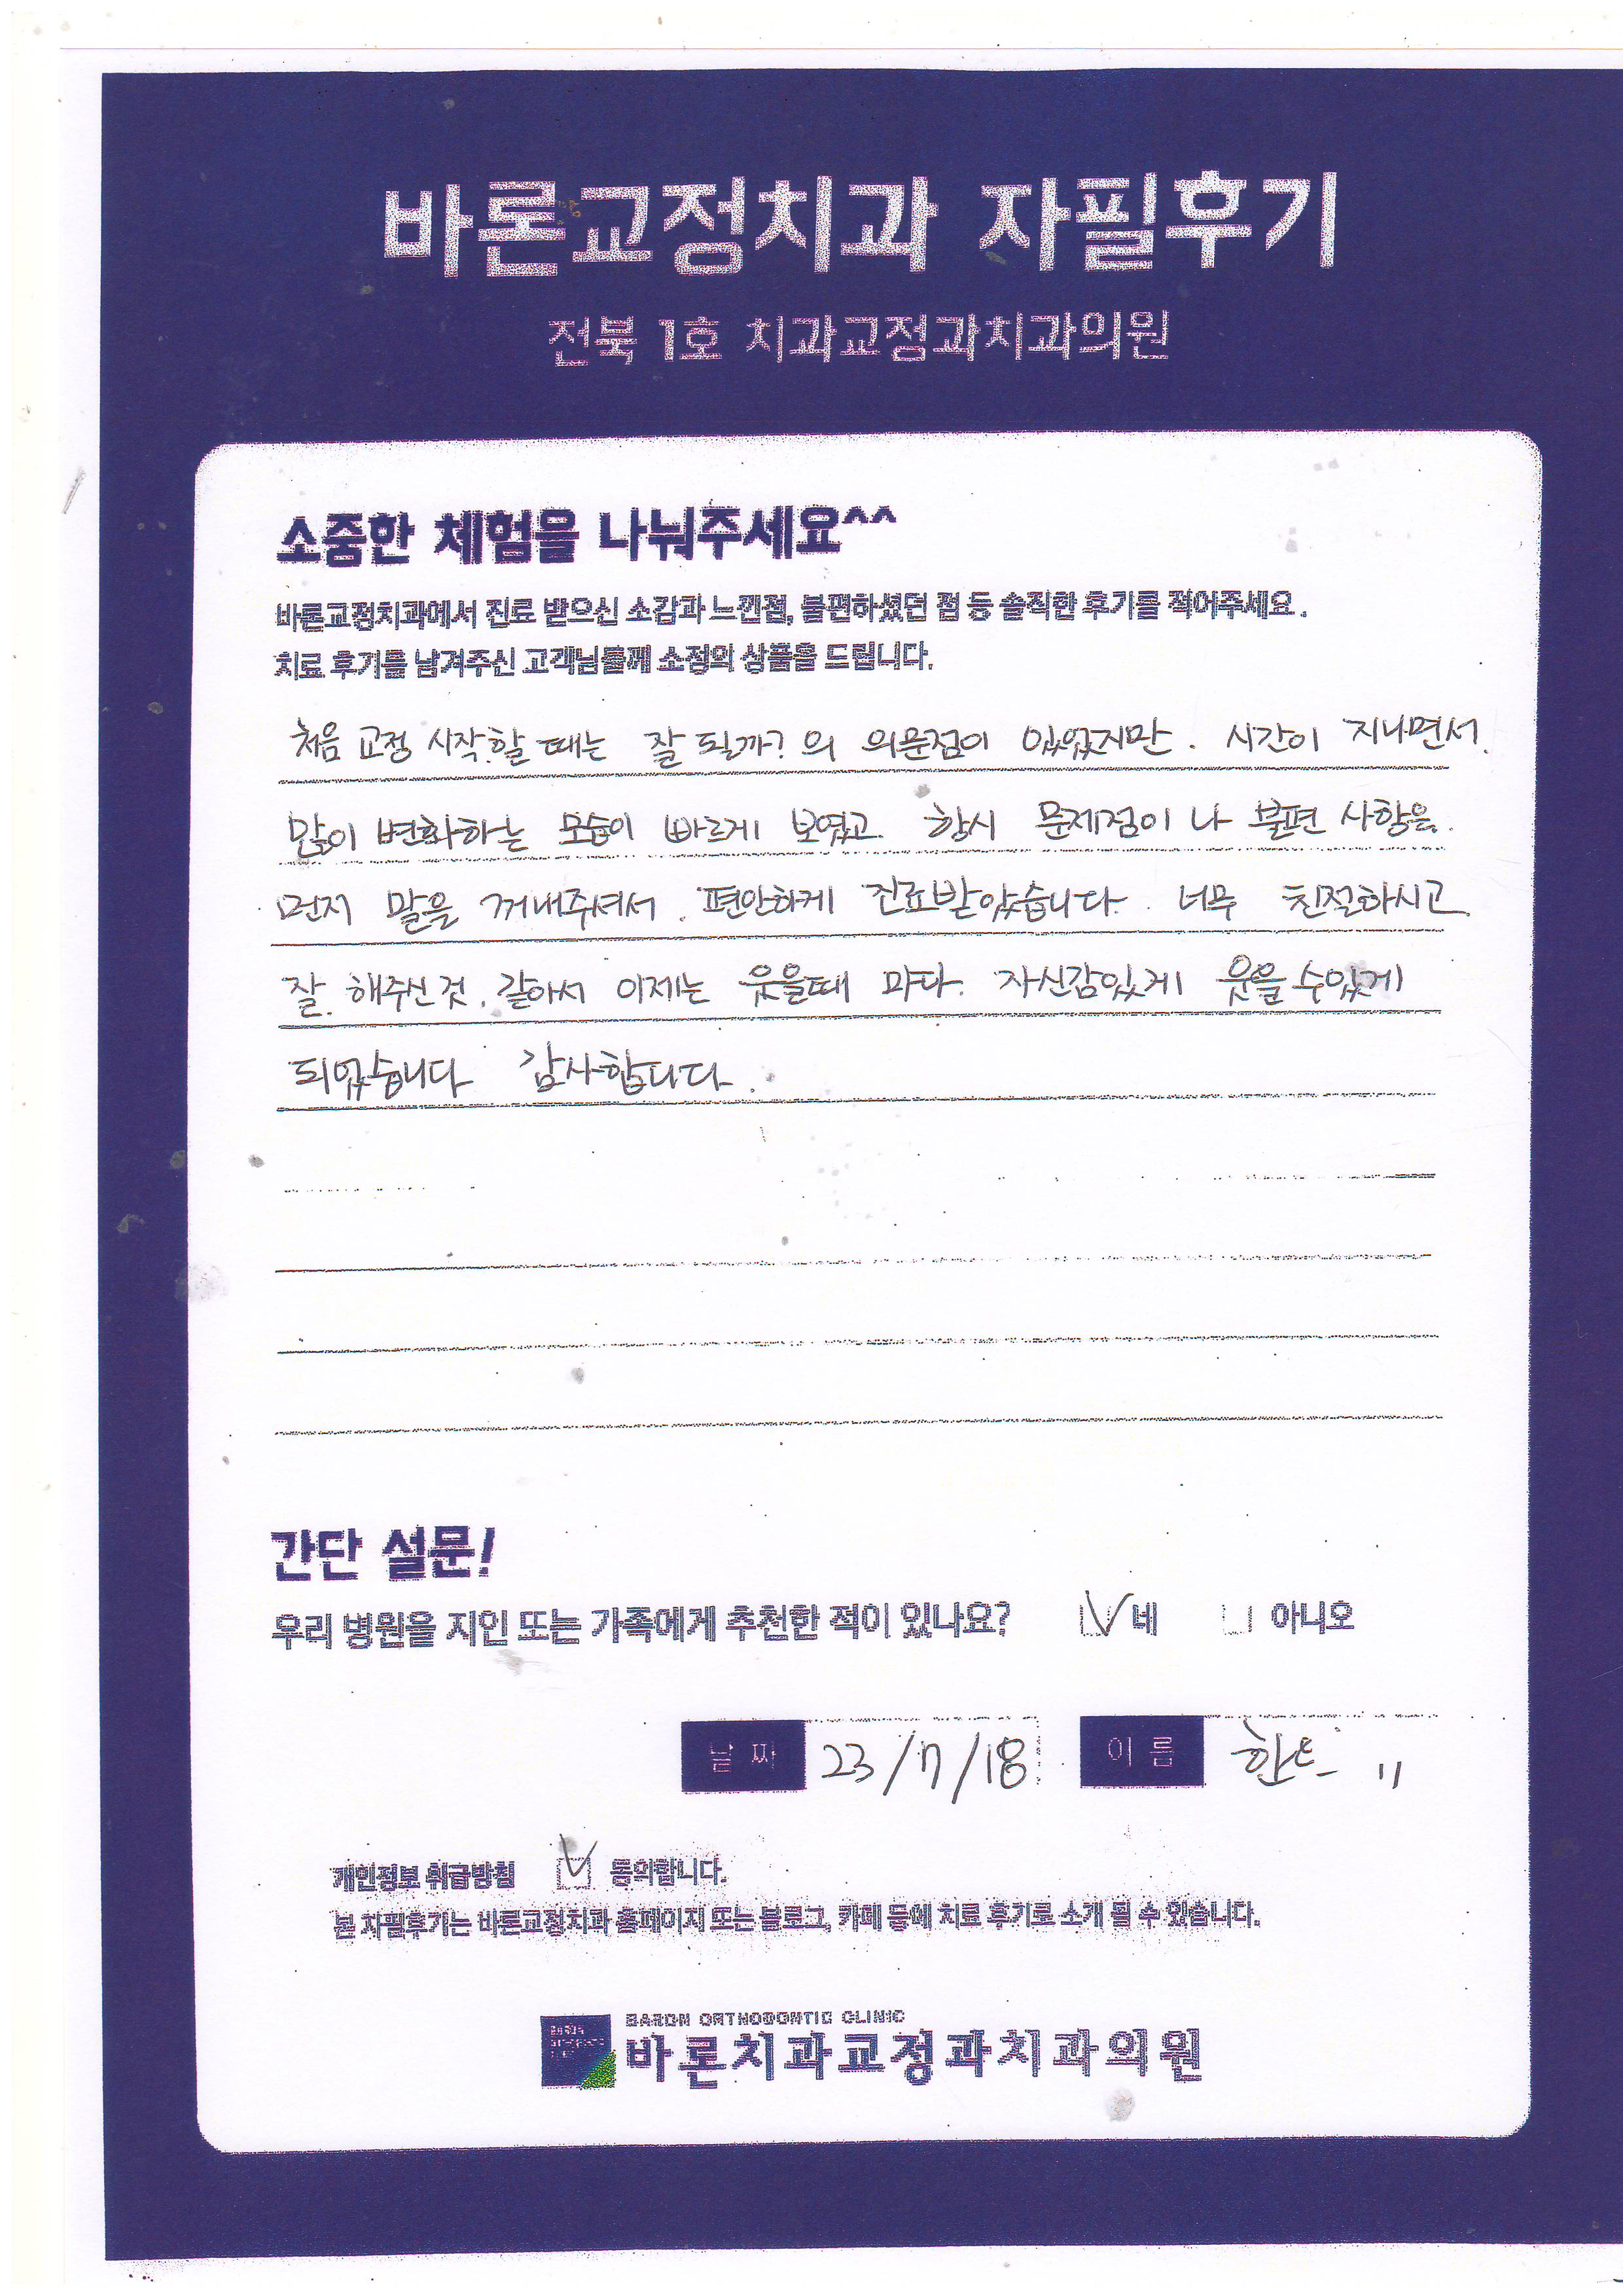 바론교정치과 자필후기
전북 1호 치과교정과치과의원
소중한 체험을 나눠주세요^^
바른교정치과에서 진료 받으신 소감과 느낀점, 불편하셨던 점 등 솔직한 후기를 적어주세요.
치료 후기를 남겨주신 고객님들께 소정의 상품을 드립니다.
처음 교정 시작할 때는 잘 될까? 의 의문점이 있었지만. 시간이 지나면서.
많이 변화하는 모습이 빠르게 보였고. 항시 문제점이나 불편 사항을.
먼저 말을 꺼내주셔서. 편안하게 진료받았습니다. 너무 친절하시고
잘 해주신것. 같아서 이제는 웃을때 마다. 자신감있게 웃을 수있게
되었습니다 감사합니다.
간단 설문!
우리 병원을 지인 또는 가족에게 추천한 적이 있나요? 네 아니오
날짜 23/7/18 이름
개인정보 취급방침 동의합니다.
본 자필후기는 바른교정치과 홈페이지 또는 블로그, 카페 등에 치료 후기로 소개 될 수 있습니다.
BARON ORTHODONTIC CLINIC
바론치과교정과치과의원